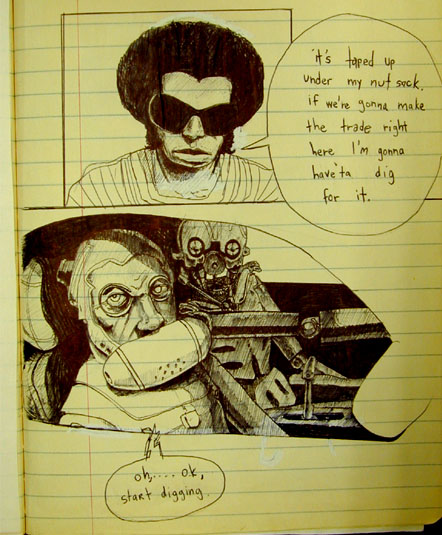 it's taped up
under my nut sack.
if we're gonna make
the trade right
here I'm gonna
have'ta dig
for it.
oh,.... o.k,
start digging.